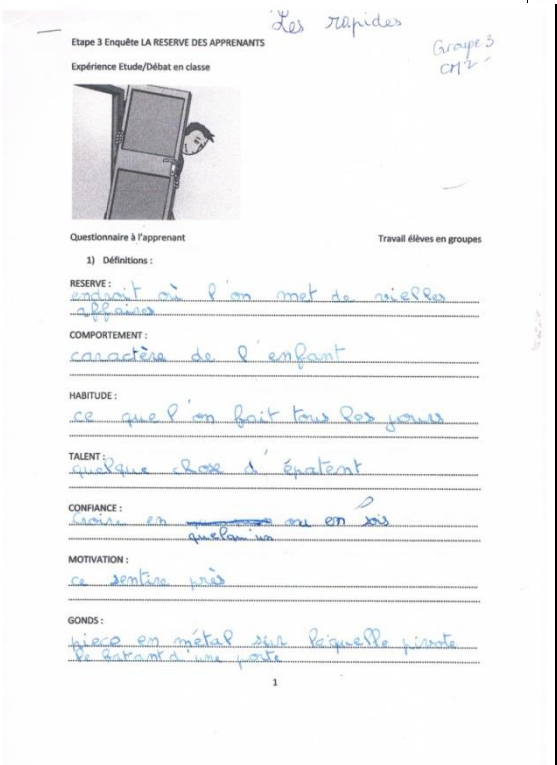 Les rapides
Groupe 3
CM2
Etape 3 Enquête LA RESERVE DES APPRENANTS
Expérience Etude/Débat en classe
Questionnaire à l'apprenant
Travail élèves en groupes
1) Définitions :
RESERVE :
endroit où l'on met de vielles
affaires
COMPORTEMENT :
caractère de l'enfant
HABITUDE :
ce que l'on fait tous les jours
TALENT :
quelque chose d'épatent
CONFIANCE :
Croire en ou en sois
quelqu'un
MOTIVATION :
ce sentire près
GONDS :
piece en métal sur laquelle pivote
le batant d'une porte
1